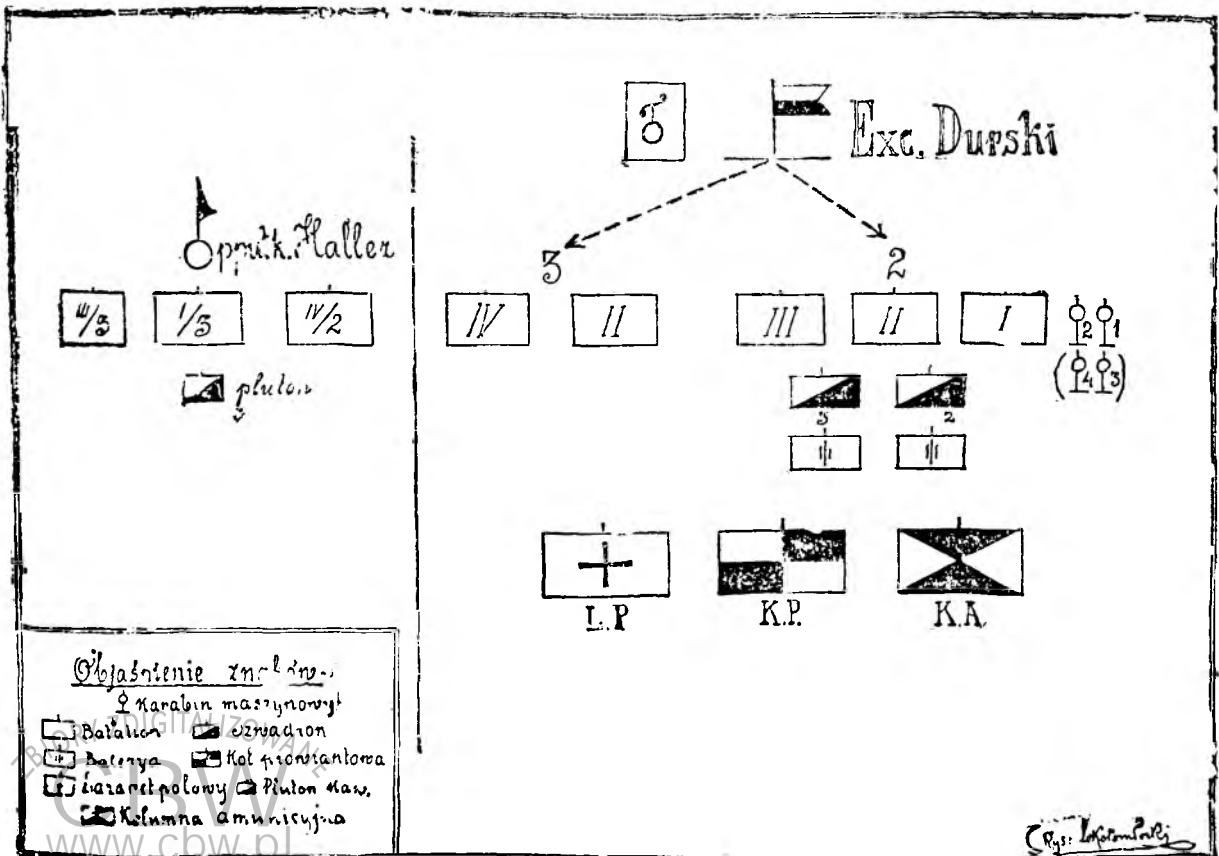 Exc. Durski
Haller
3 2
III/3 I/3 IV/2 IV II III II I 2 1
(4 3)
pluton
3 2
L.P K.P. K.A.
Objaśnienie
Karabin maszynowy
Batalion szwadron
Baterya Kol prowiantowa
Lazaret polowy Pluton kaw.
Kolumna amunicyjna
Rys:
ZBIORY ZDIGITALIZOWANE
CBW
www.cbw.pl